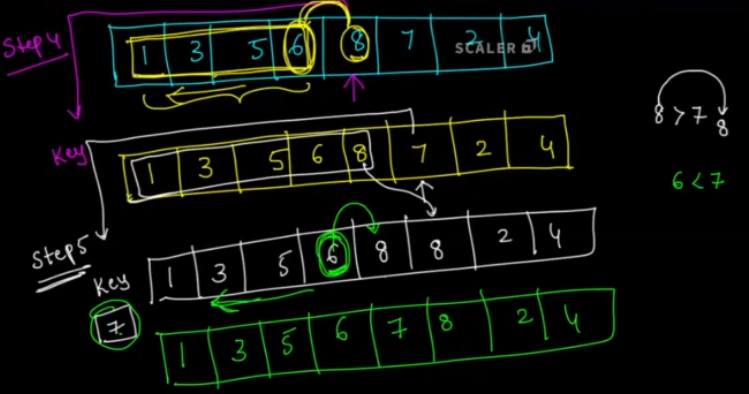 Step 4
1 3 5 6 8 7 2 4
SCALER
8 > 7 8
Key
1 3 5 6 8 7 2 4
6 < 7
Step 5
Key
1 3 5 6 8 8 2 4
7
1 3 5 6 7 8 2 4